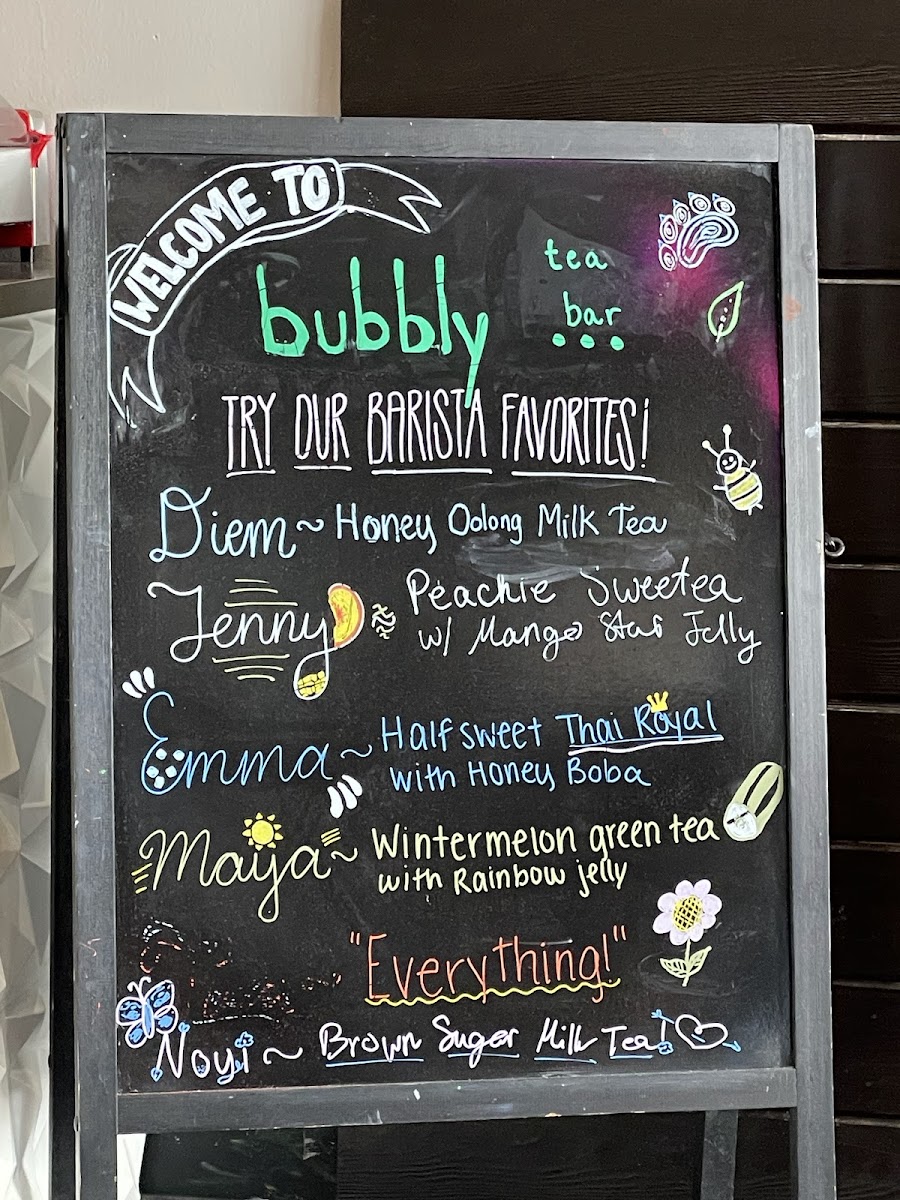 WELCOME TO
bubbly tea bar
TRY OUR BARISTA FAVORITES!
Diem ~ Honey Oolong Milk Tea
Jenny ~ Peachie Sweetea
w/ Mango Star Jelly
Emma ~ Half sweet Thai Royal
with Honey Boba
Maya ~ Wintermelon green tea
with Rainbow jelly
"Everything!"
Noyi ~ Brown Suger Milk Tea!